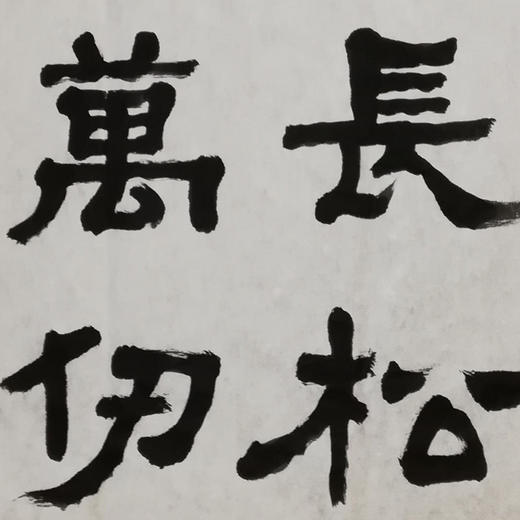 長松
萬仞